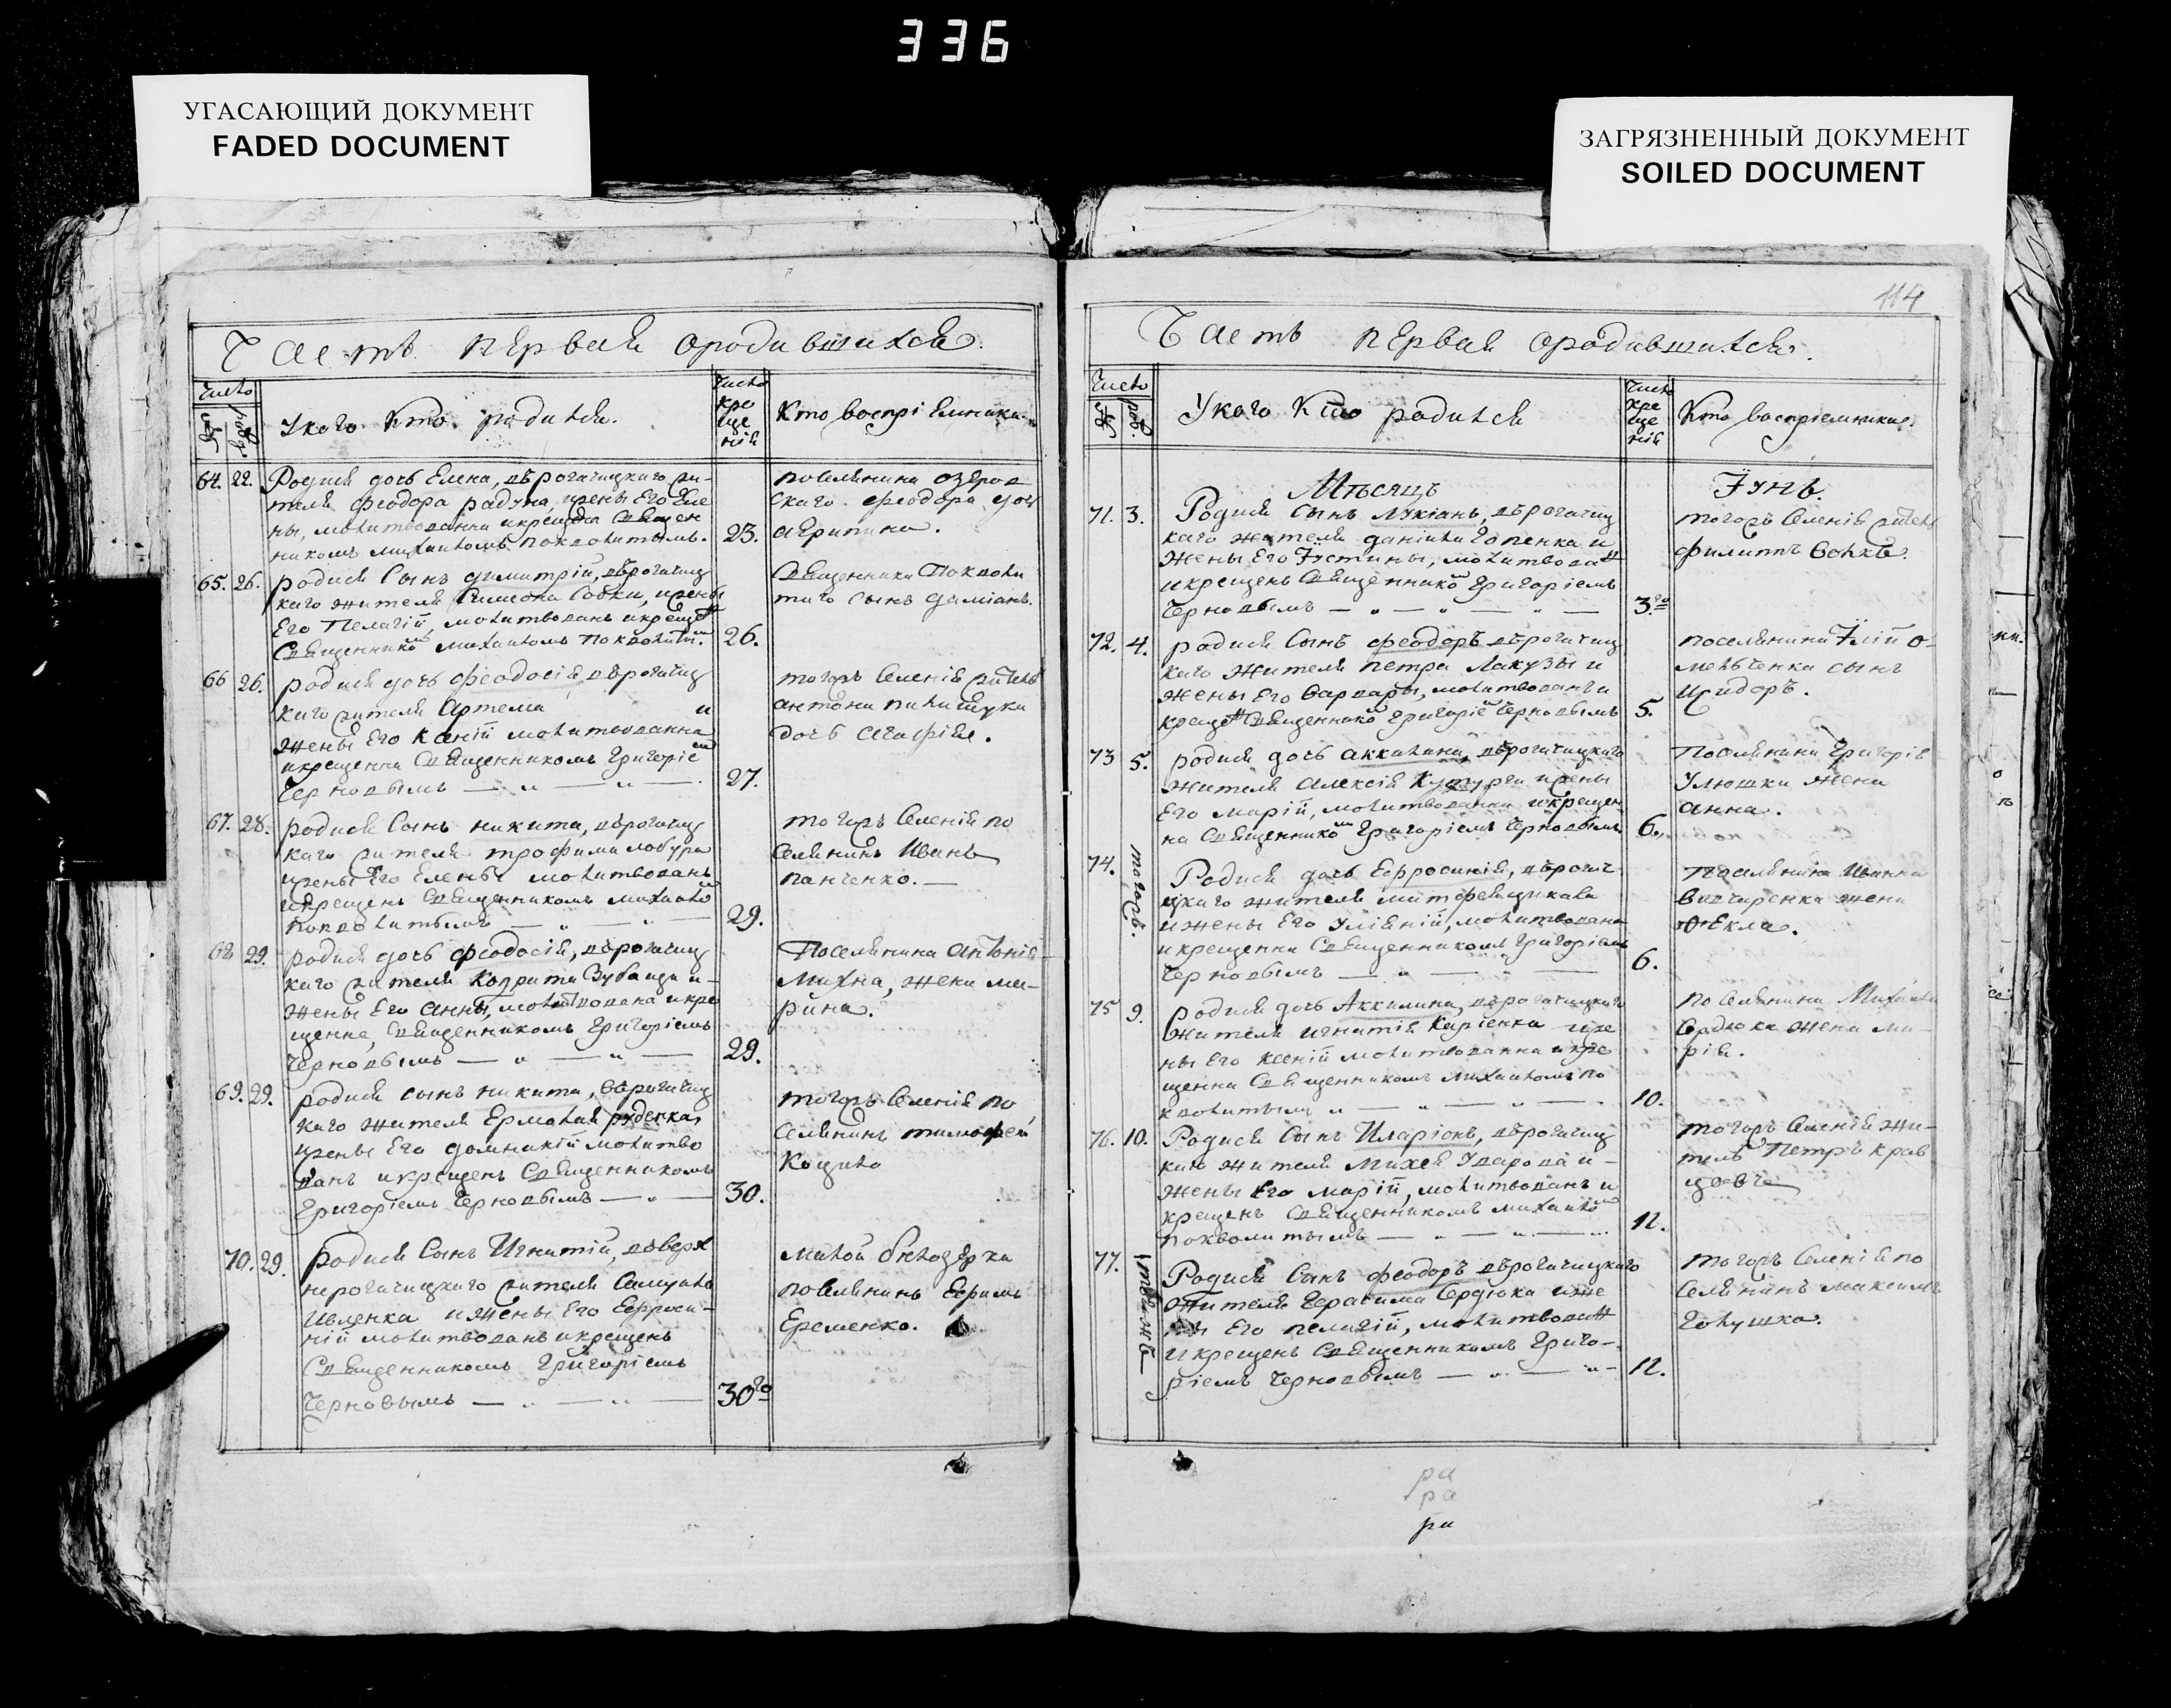 336
УГАСАЮЩИЙ ДОКУМЕНТ
FADED DOCUMENT
ЗАГРЯЗНЕННЫЙ ДОКУМЕНТ
SOILED DOCUMENT
Часть первая ородившихся.
Число
У кого кто родился.
Число
кре
ще
нія
Кто воспріемники.
64. 22. Родися дочь Елена, вѣрогачицкаго жи-
теля феодора радука, жены Его Еле
ны, молитвованна и крещена Священ
никомъ михаиломъ поквалитымъ. 23.
поселянина озеров
скаго феодора дочь
агрипина.
65. 26. родися Сынъ димитрій, вѣрогачиц
каго жителя Симеона Совки, жены
Его Пелагіи, молитвованъ и крещен
Священником михаиломъ поквалитым. 26.
Священника Поквали
таго сынъ даміанъ.
66 26. родися дочь феодосія, вѣрогачиц
каго жителя Артема и
жены Его Ксеніи молитвованна
и крещенна Священникомъ Григоріем
Черновымъ 27.
тогожъ Селенія житель
антона
дочь агафія.
67. 28. родися Сынъ никита, вѣрогачиц
каго жителя трофима
жены Его Елены молитвованъ
и крещенъ Священникомъ михаилом
поквалитымъ 29.
тогожъ Селенія по
селянинъ Иванъ
панченко.
68 29. родися дочь феодосія, вѣрогачиц
каго жителя Кодрата Зубанця и
жены Его анны, молитвована и кре
щенна, Священникомъ Григоріемъ
Черновымъ 29.
Поселянина антонія
Михна, жена ма-
рина.
69. 29. родися сынъ никита, вѣрогачиц
каго жителя Ермолая руденка,
жены Его домникіи молитво
ванъ и крещенъ Священникомъ
Григоріемъ Черновымъ 30.
тогожъ Селенія по
селянинъ тимофей
Коцило
70. 29. родися Сынъ Игнатій, въверх
нерогачицкаго жителя Самуила
Ивленка и жены Его Евфроси-
ніи молитвованъ и крещенъ
Священникомъ Григоріемъ
Черновымъ 30го
малой бѣлозерки
поселянинъ Ефимъ
Еременко.
114
Часть первая ородившихся.
Число
У кого кто родился
Число
кре
ще
нія
Кто воспріемники.
Мѣсяцъ Іунь.
71. 3. Родися сынъ Лукіанъ, вѣрогачиц
каго жителя даніила Гопенка и
жены Его Іустины, молитвован
и крещенъ Священником Григоріемъ
Черновымъ 3.го
тогожъ Селенія житель
филиппъ Вовкъ.
72. 4. родися сынъ феодоръ вѣрогачиц
каго жителя петра Лакузы и
жены Его варвары, молитвованъ и
крещен Священником Григоріем Черновымъ 5.
поселянина Іліи о-
мельченка сынъ
Исидоръ.
73 5. родися дочь аккилина, вѣрогачицкаго
жителя алексія Кутурги жены
Его маріи, молитвованна и крещен
на Священником Григоріемъ Черновымъ 6.
Поселянина Григорія
Улюшки жена
анна.
74. тогожъ. Родися дочь Евфросинія, вѣрогач
цкаго жителя митофея
и жены Его Уліяніи, молитвована
и крещенна Священникомъ Григоріемъ
Черновымъ 6.
Поселянина Ивана
жена
Фекла.
75 9. родися дочь Аккилина, вѣрогачицкаго
жителя игнатія Карпенка и же
ны Его ксеніи молитвованна и кре
щенна Священникомъ Михаиломъ по
квалитымъ 10.
поселянина Михаила
Сердюка жена ма-
рія.
76. 10. Родися Сынъ Иларіонъ, вѣрогачиц
каго жителя михея Ударова и
жены Его маріи, молитвованъ и
крещенъ Священникомъ михаилом
поквалитымъ 12.
тогожъ Селенія жи-
тель Петръ крав
цовъ
77. Родися Сынъ феодоръ вѣрогачицкаго
жителя Герасима Сердюка и же
ны Его пелагіи, молитвован
и крещенъ Священникомъ Григо-
ріемъ Черновымъ 12.
тогожъ Селенія по
Селянинъ максимъ
Голушко.
ра
ра
ра